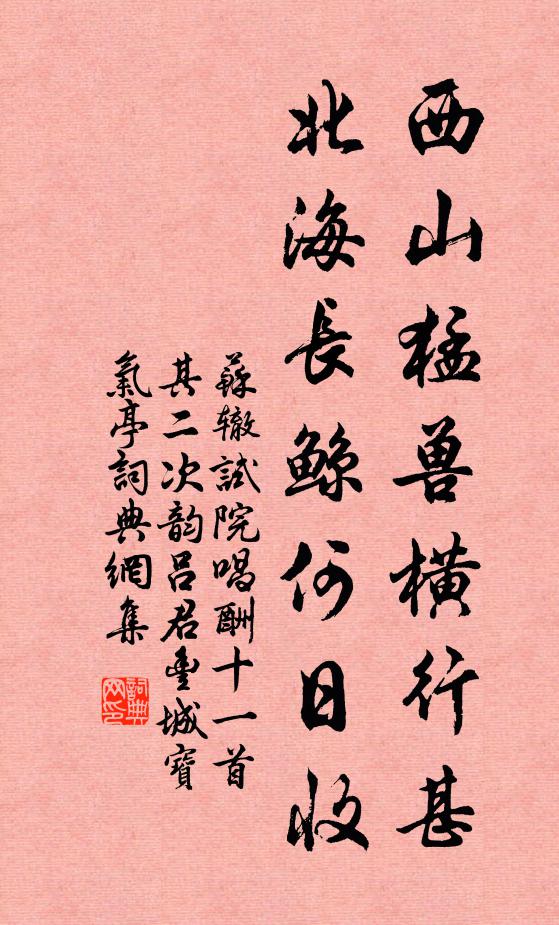 西山猛兽横行甚
北海長鲸何日收
蘇辙試院唱酬十一首
其二次韵吕君豊城寶
氣亭詞典網集
詞典网印